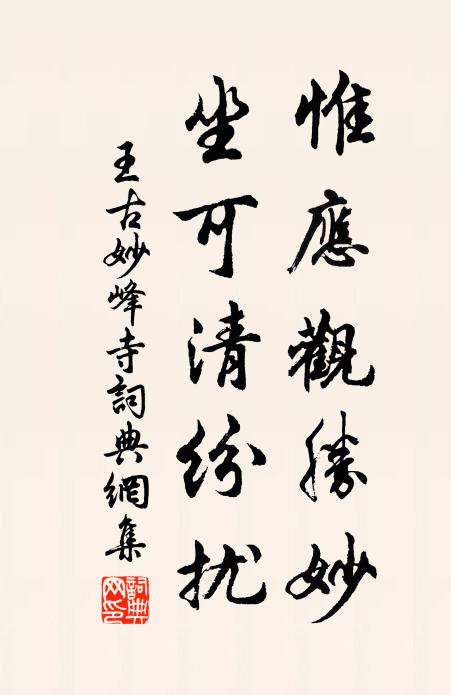 惟應觀勝妙
坐可清纷扰
王古妙峰寺詞典網集
詞典网印